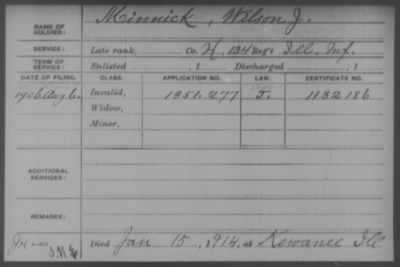 NAME OF SOLDIER: Minnick, Wilson J.
SERVICE: Late rank, Co. H, 134 Reg't Ill. Inf.
TERM OF SERVICE: Enlisted , 1 Discharged , 1
DATE OF FILING. CLASS. APPLICATION NO. LAW. CERTIFICATE NO.
1906 Aug 6. Invalid, 1351.277 J. 1132186
Widow,
Minor,
ADDITIONAL SERVICES:
REMARKS:
Died Jan 15, 1914, at Kewanee Ill